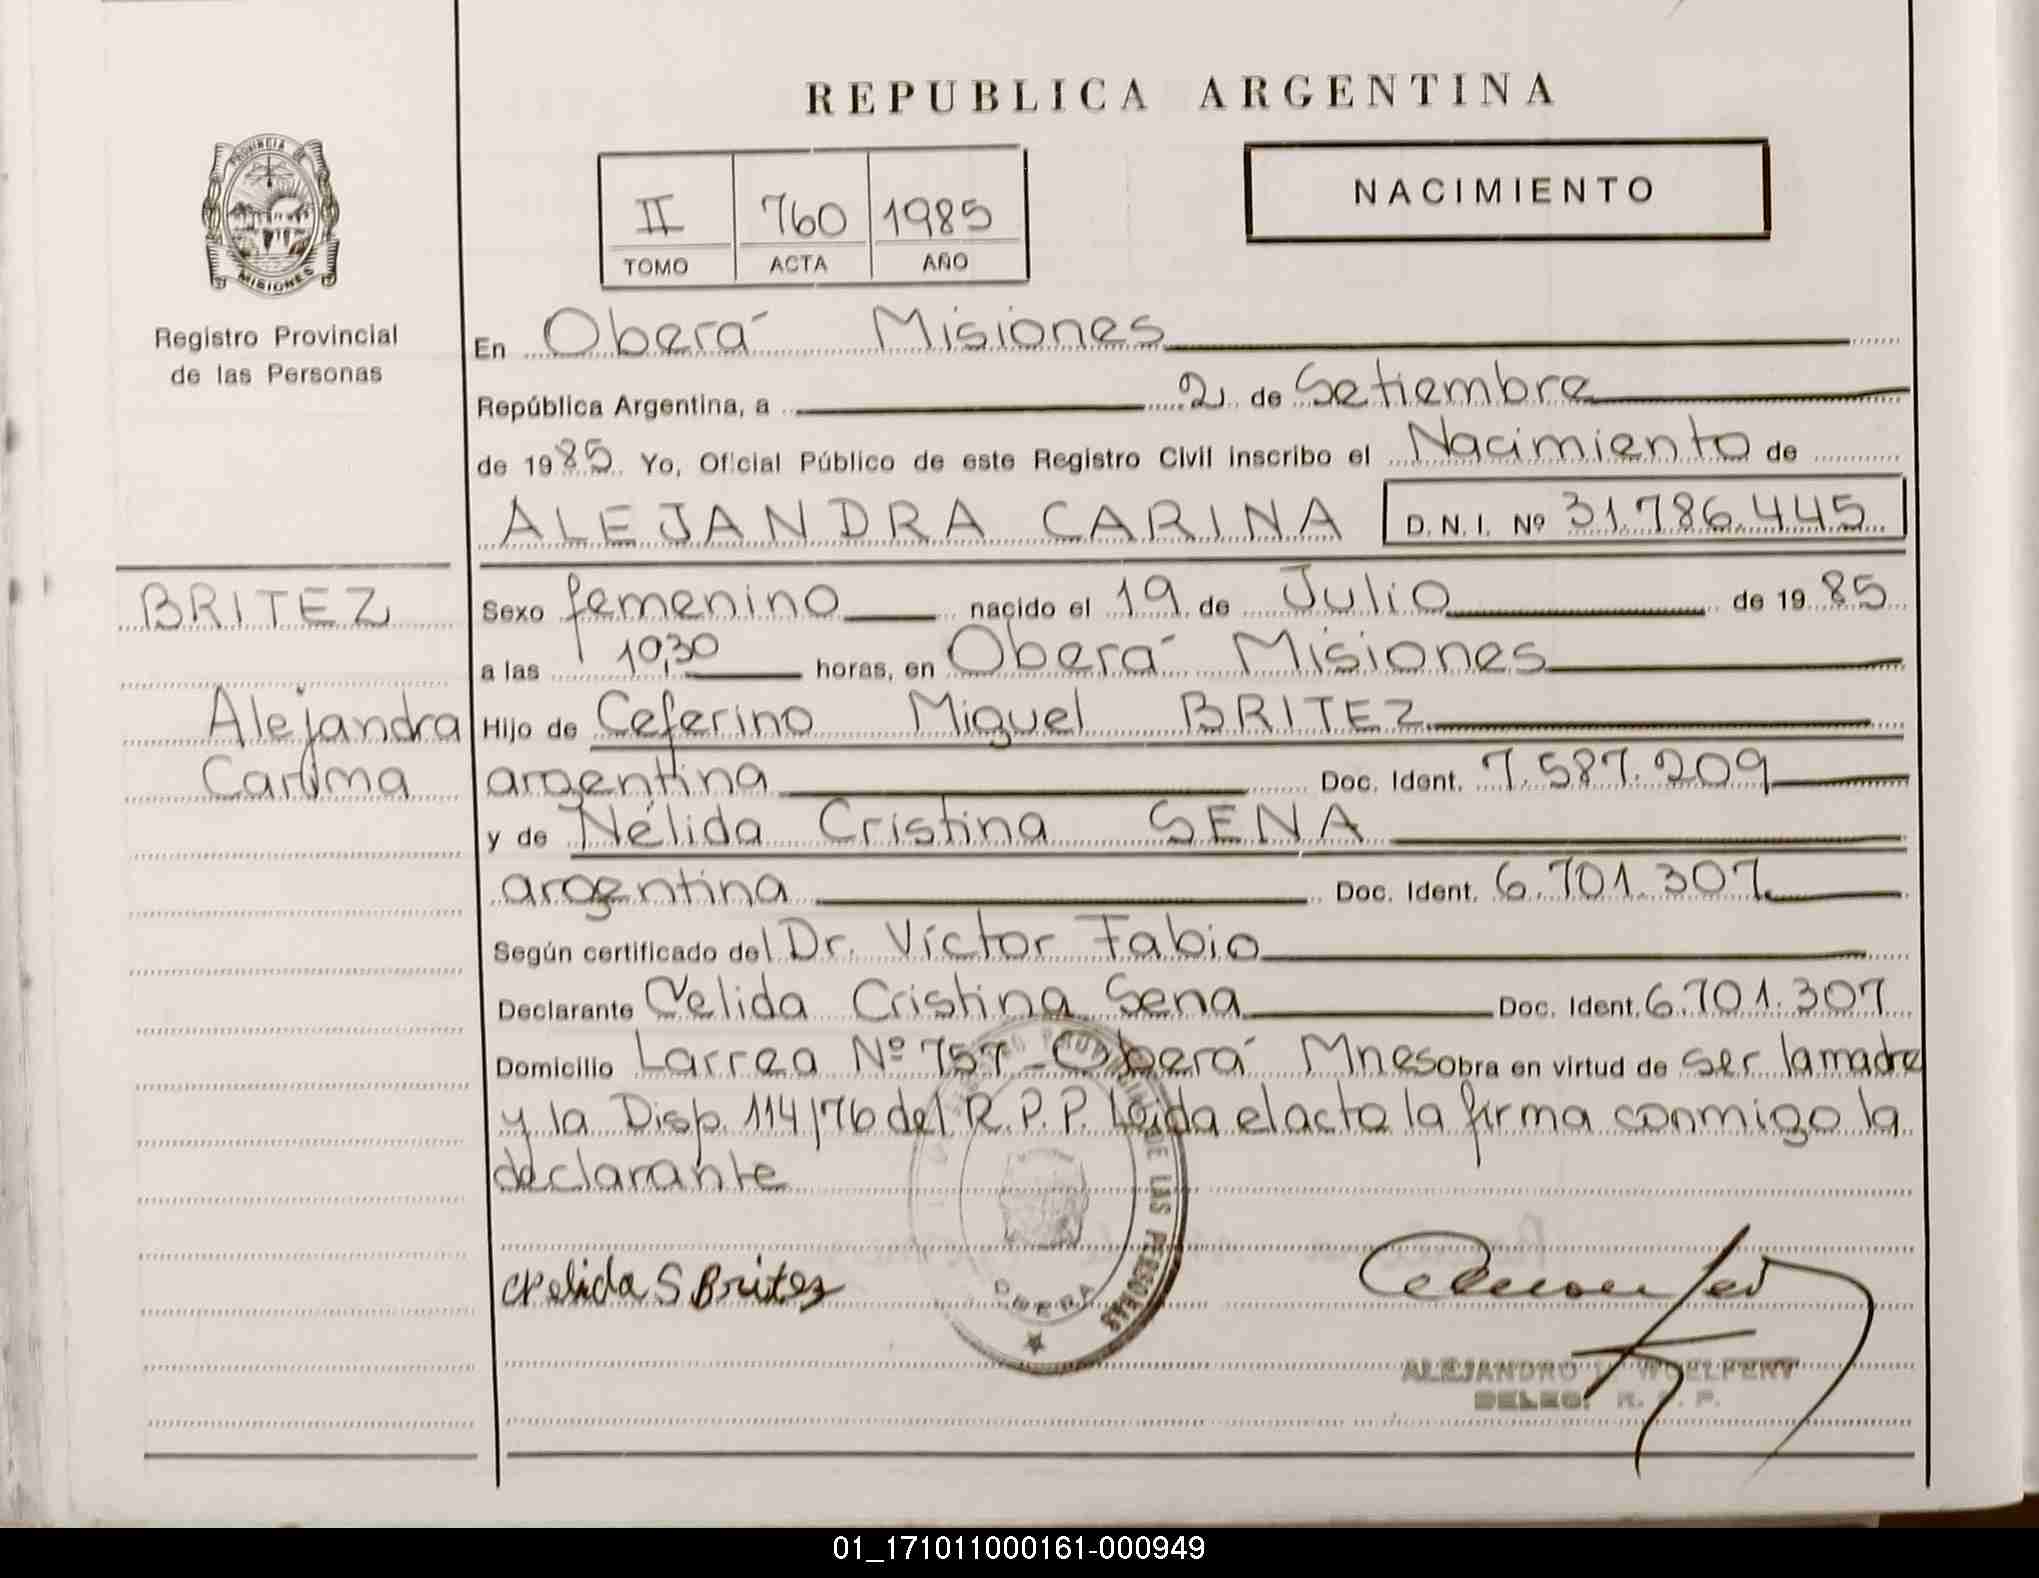 REPUBLICA ARGENTINA
PROVINCIA DE
MISIONES
Registro Provincial
de las Personas
NACIMIENTO
II 760 1985
TOMO ACTA AÑO
En Oberá Misiones
República Argentina, a 2 de Setiembre
de 1985 Yo, Oficial Público de este Registro Civil inscribo el Nacimiento de
ALEJANDRA CARINA D.N.I. Nº 31.786.445
BRITEZ
Alejandra
Carina
Sexo femenino nacido el 19 de Julio de 1985
a las 10,30 horas, en Oberá Misiones
Hijo de Ceferino Miguel BRITEZ
argentina Doc. Ident. 7.587.209
y de Nélida Cristina SENA
argentina Doc. Ident. 6.701.307
Según certificado del Dr. Víctor Fabio
Declarante Nélida Cristina Sena Doc. Ident. 6.701.307
Domicilio Larrea Nº 757 - Oberá Mnes obra en virtud de ser la madre
y la Disp. 114/76 del R.P.P. Leida el acto la firma conmigo la
declarante
DE LAS PERSONAS
OBERA
Nelida S Britez
ALEJANDRO
DELEG. R. P.
01_171011000161-000949